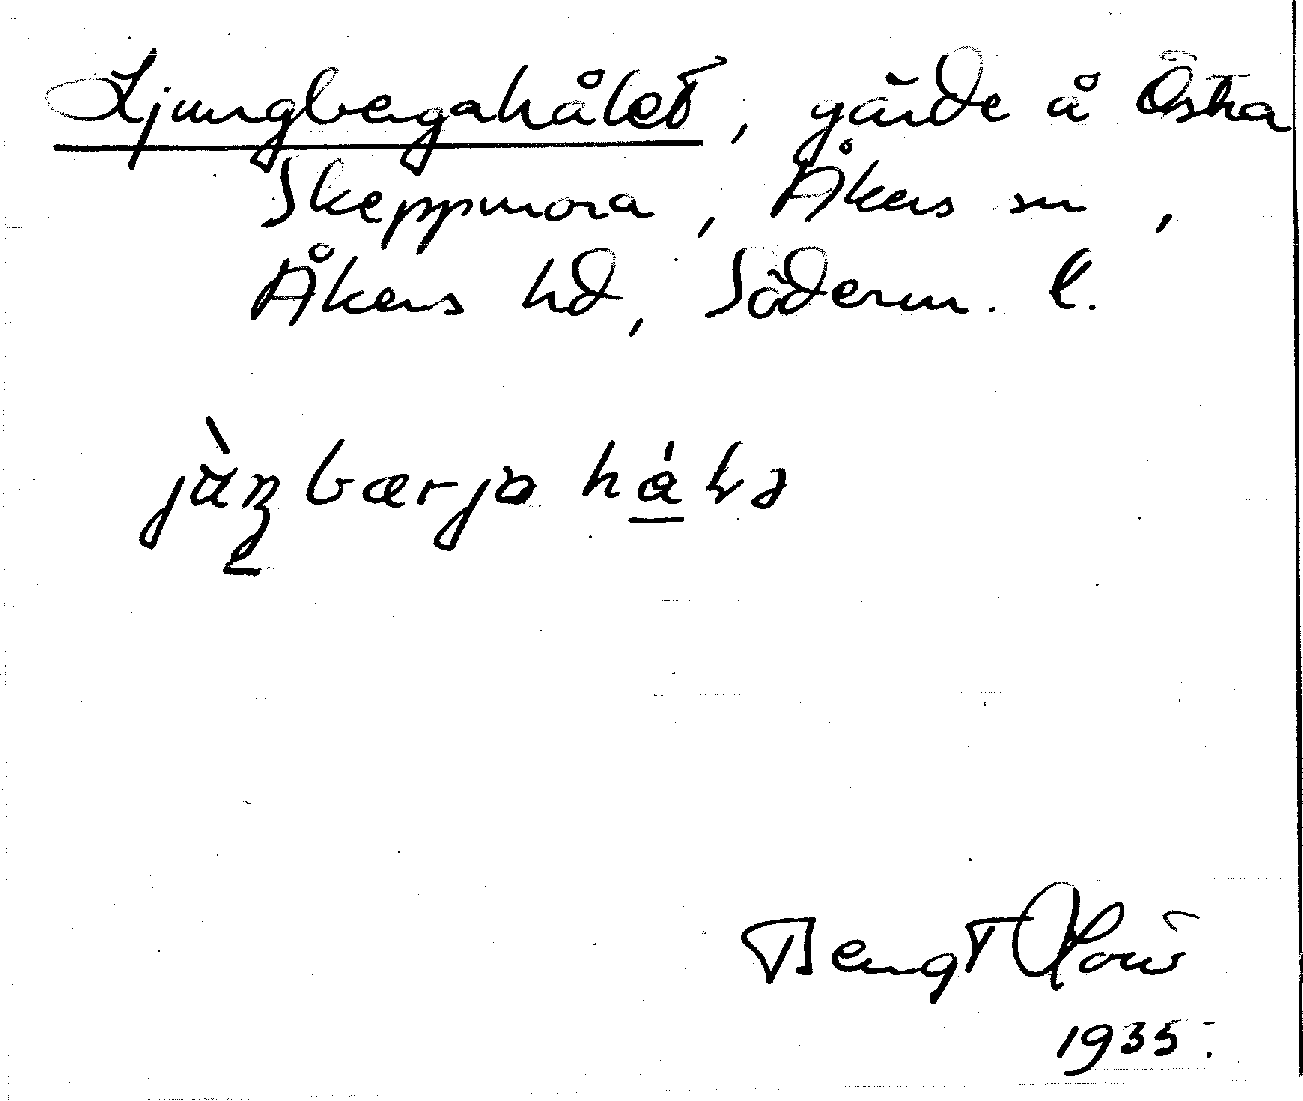 Ljungbergahålet, gärde å Östra
Skeppmora, Åkers sn,
Åkers hd, Söderm. l.
Bengt
1935.